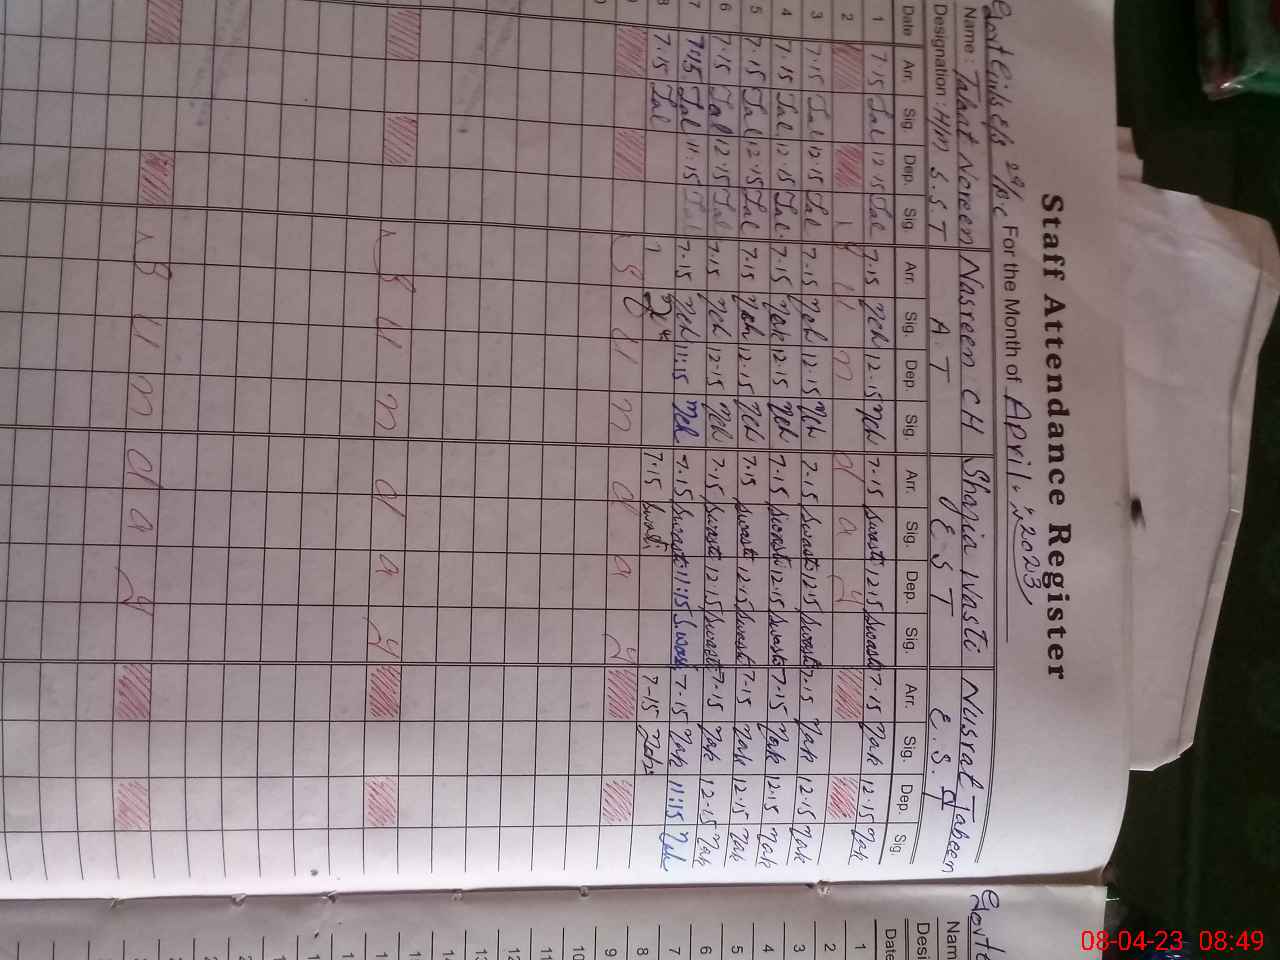 Staff Attendance Register
For the Month of April. 2023
Name: Talaat Noreen Nasreen CH Shazia Wasti Nusrat Jabeen
Designation: H/M S.S.T A.T E.S.T E.S.T
Date Arr. Sig. Dep. Sig. Arr. Sig. Dep. Sig. Arr. Sig. Dep. Sig. Arr. Sig. Dep. Sig.
1 7.15 Tal 12.15 Tal 7.15 Nch 12.15 Nch 7.15 Swasti 12.15 Swasti 7.15 Nak 12.15 Nak
2 Sunday
3 7.15 Tal 12.15 Tal 7.15 Nch 12.15 Nch 7.15 Swasti 12.15 Swasti 7.15 Nak 12.15 Nak
4 7.15 Tal 12.15 Tal 7.15 Nch 12.15 Nch 7.15 Swasti 12.15 Swasti 7.15 Nak 12.15 Nak
5 7.15 Tal 12.15 Tal 7.15 Nch 12.15 Nch 7.15 Swasti 12.15 Swasti 7.15 Nak 12.15 Nak
6 7.15 Tal 12.15 Tal 7.15 Nch 12.15 Nch 7.15 Swasti 12.15 Swasti 7.15 Nak 12.15 Nak
7 7:15 Tal 11:15 Tal 7.15 Nch 11:15 Nch 7.15 Swasti 11:15 S.wasti 7.15 Nak 11:15 Nak
8 7.15 Tal 7 7.15 Swasti 7-15
9 Sunday
Sunday
Sunday
Date
1
2
3
4
5
6
7
8
9
10
11
12
13
08-04-23 08:49